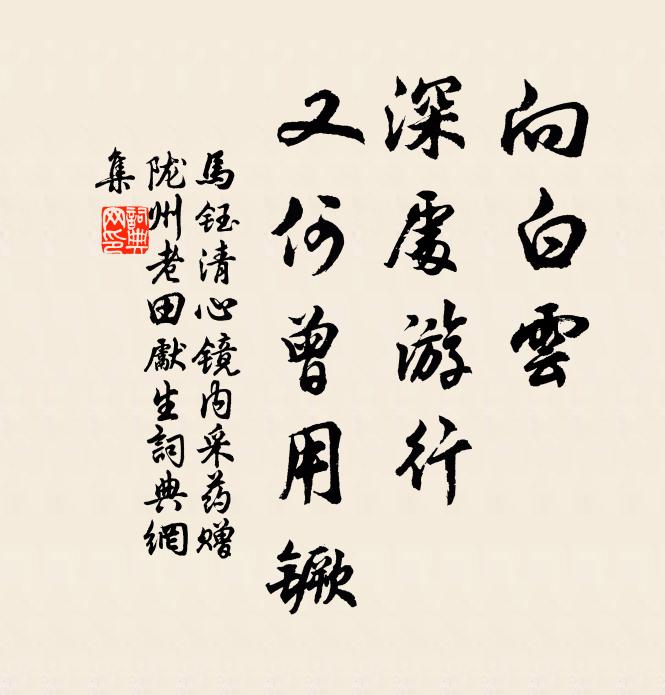 向白雲
深處游行
又何曾用鐝
馬鈺清心镜内采药赠
陇州老田獻生詞典網
集
詞典
网印